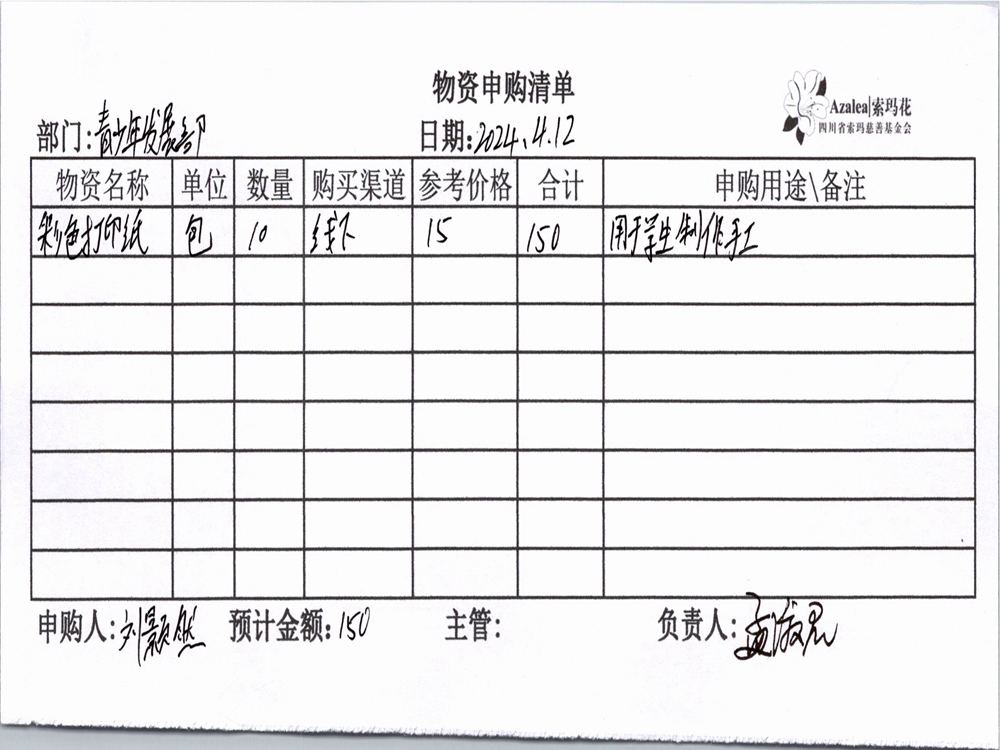 物资申购清单
Azalea|索玛花
四川省索玛慈善基金会
部门:青少年发展部 日期:2024.4.12
物资名称 单位 数量 购买渠道 参考价格 合计 申购用途\备注
彩色打印纸 包 10 线下 15 150 用于学生制作手工
申购人:刘颢然 预计金额:150 主管: 负责人: